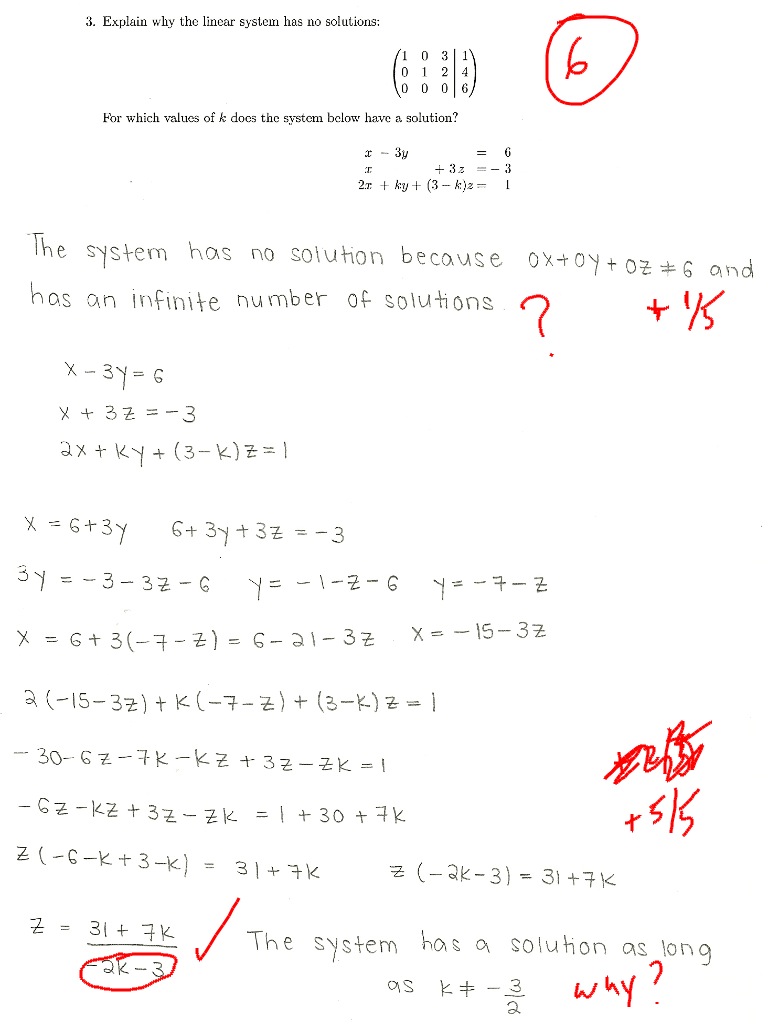 3. Explain why the linear system has no solutions:
6
1 0 3 | 1
0 1 2 | 4
0 0 0 | 6
For which values of k does the system below have a solution?
x − 3y = 6
x + 3z = − 3
2x + ky + (3 − k)z = 1
The system has no solution because 0x+0y+0z ≠ 6 and
has an infinite number of solutions. ? + 1/5
x − 3y = 6
x + 3z = −3
2x + ky + (3−k)z = 1
x = 6+3y 6+3y+3z = −3
3y = −3−3z−6 y = −1−z−6 y = −7−z
x = 6+3(−7−z) = 6−21−3z x = −15−3z
2(−15−3z)+k(−7−z)+(3−k)z = 1
−30−6z−7k−kz+3z−zk = 1
−6z−kz+3z−zk = 1+30+7k
+5/5
z(−6−k+3−k) = 31+7k z(−2k−3) = 31+7k
z = 31+7k / −2k−3 ✓ The system has a solution as long
as k ≠ −3/2 why?